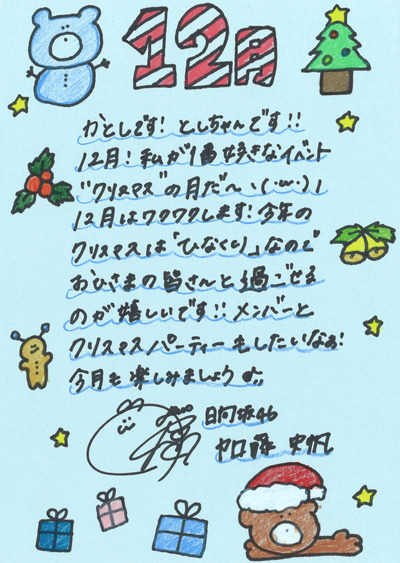 12月
かとしです! としちゃんです!!
12月! 私が1番好きなイベント
"クリスマス"の月だ〜ヽ(·ω·)ﾉ
12月はワクワクします! 今年の
クリスマスは「ひなくり」なので
おひさまの皆さんと過ごせる
のが嬉しいです!! メンバーと
クリスマスパーティーもしたいなぁ!
今月も楽しみましょう♫
日向坂46
加藤 史帆